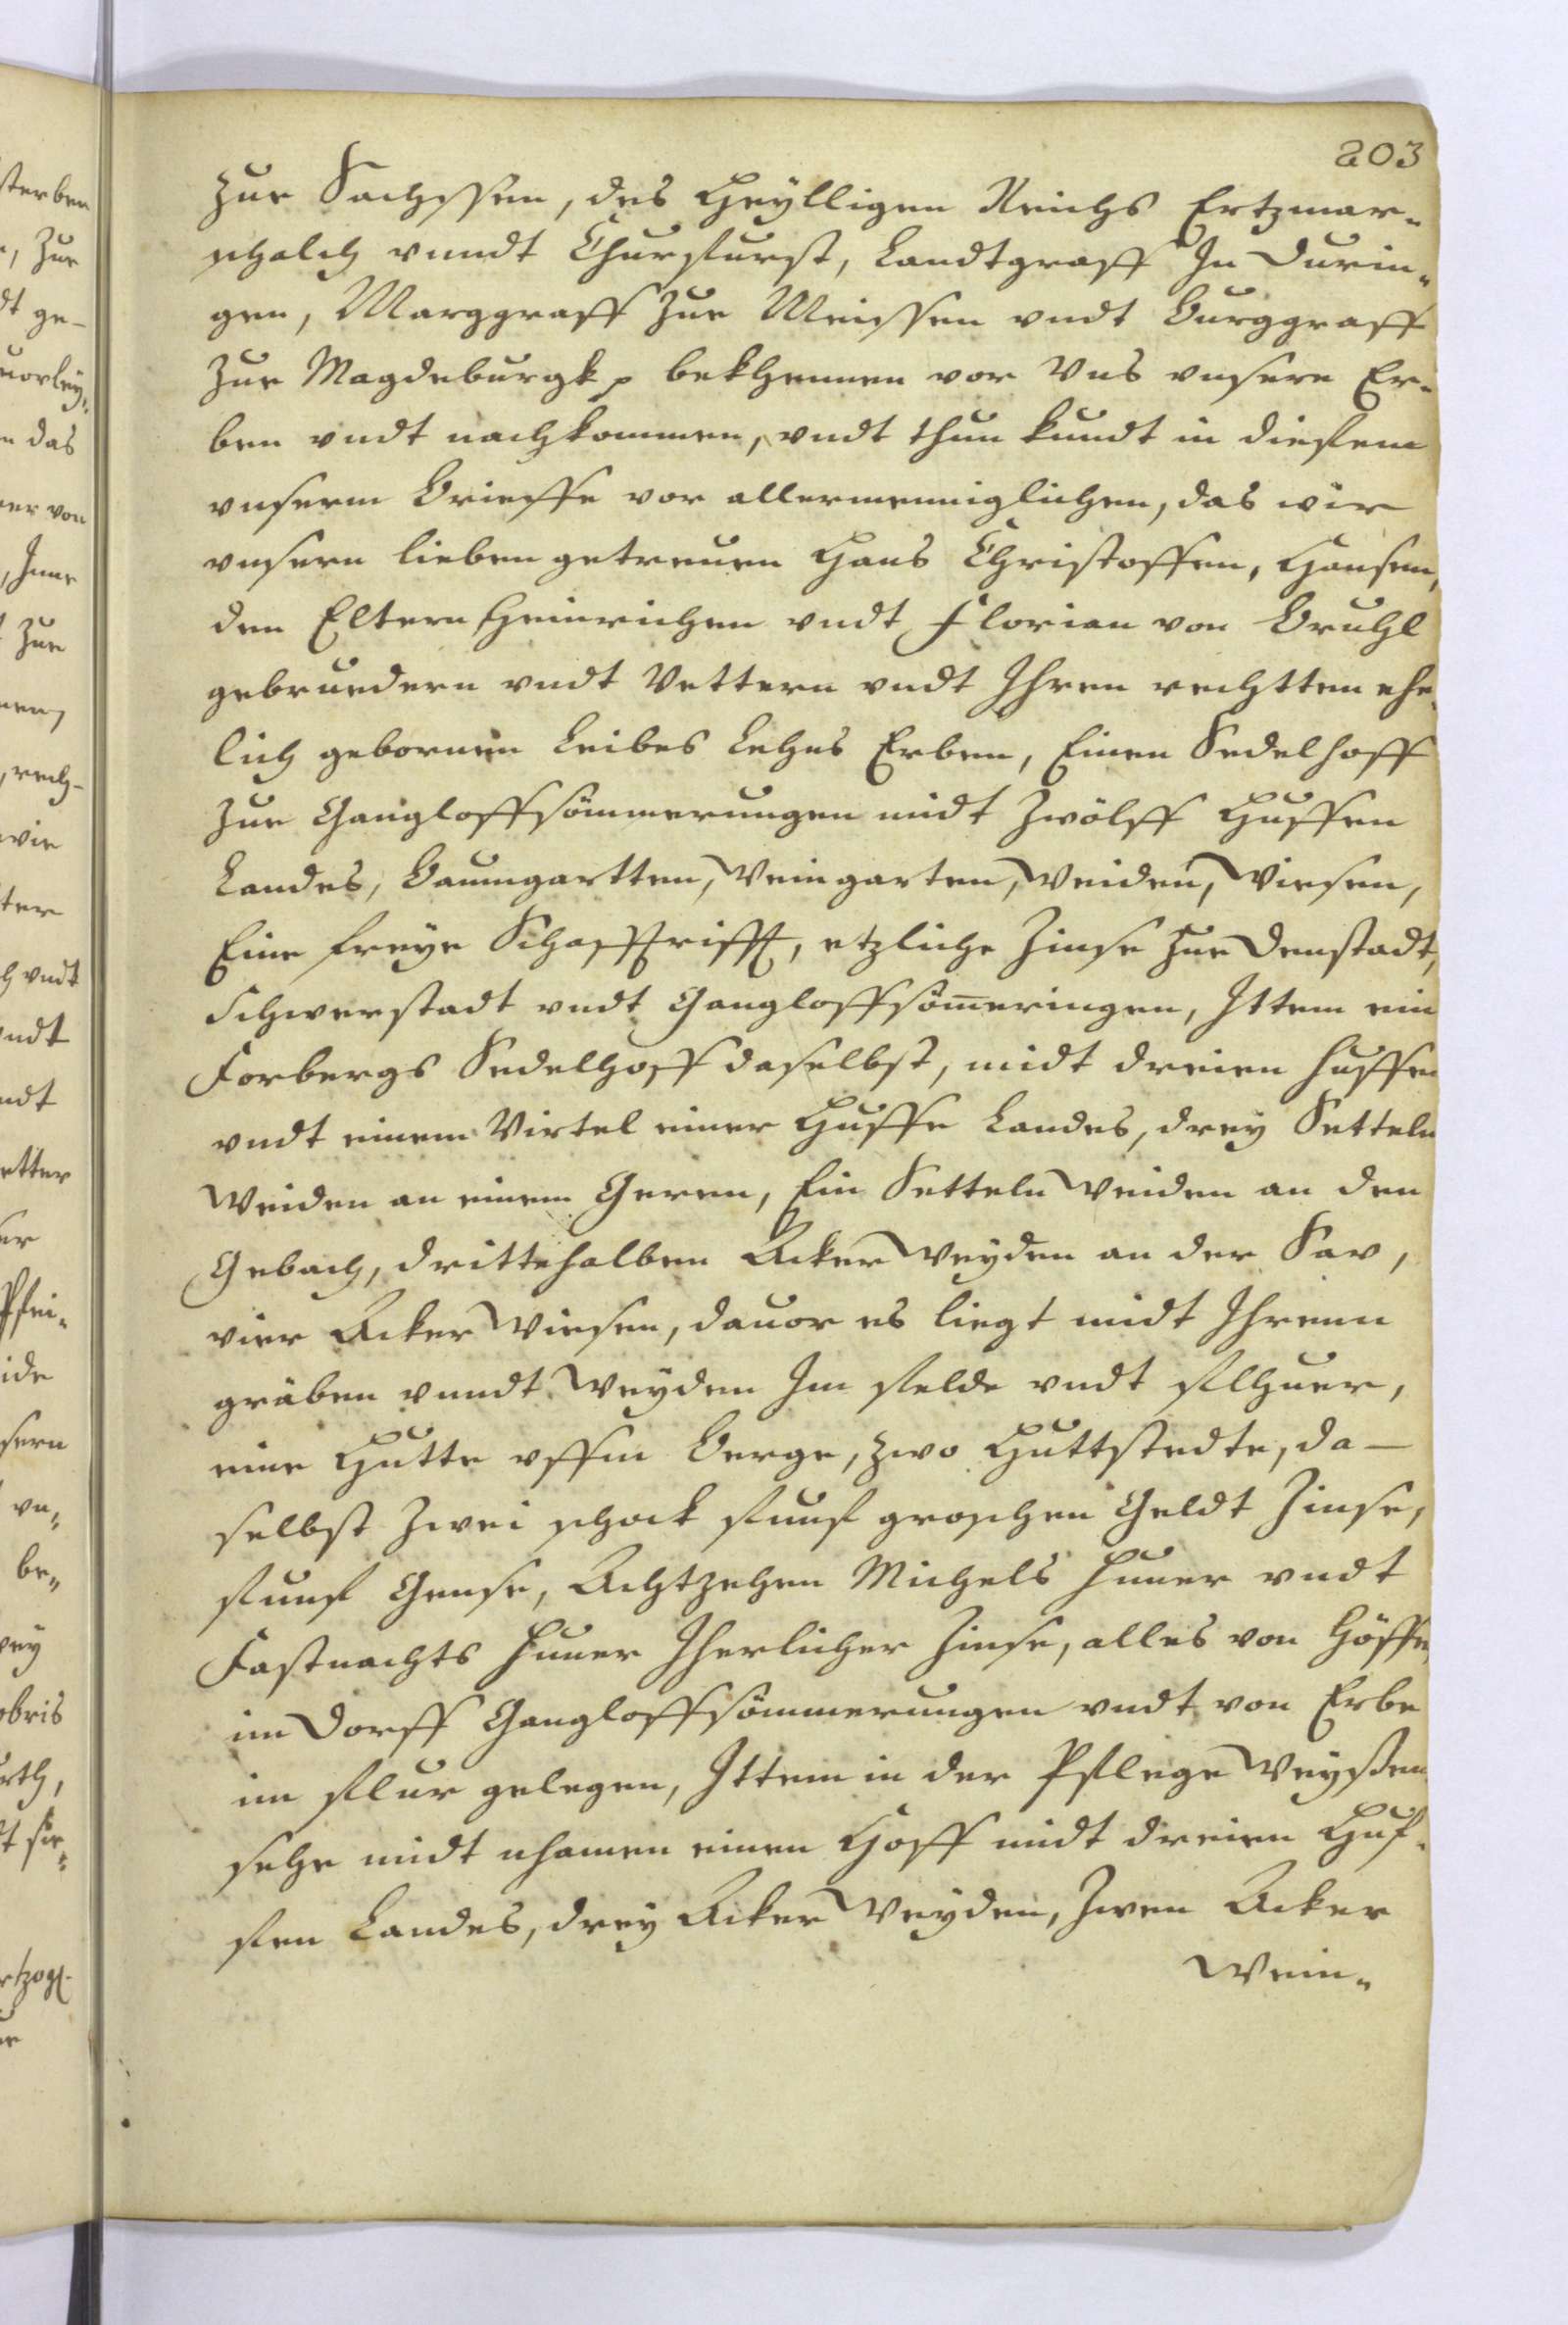 203
zue Sachssen, des Heylligen Reichs Ertzmar-
schalch vnndt Churfurst, Landtgraff In Durin-
gen, Marggraff zue Meissen vndt Burggraff
zue Magdeburgk p bekhennen vor Vns vnsere Er-
ben vndt nachkommen, vndt thun kundt in diesem
vnserm Brieffe vor allermenniglichen, das wir
vnsern lieben getreuen Hans Christoffen, Hansen,
den Eltern Heinrichen vndt Florian von Bruhl
gebruedern vndt Vettern vndt Ihren rechtten ehe-
lich gebornen Leibes Lehns Erben, Einen Sedelhoff
zue Gangloffsömmerungen midt zwölff Huffen
Landes, Baumgartten, Weingarten, Weiden, Wiesen,
Eine freye Schafftrifft, etzliche Zinse zue Denstadt,
Schwerstadt vndt Gangloffsömeringen, Ittem ein
Forbergs Sedelhoff daselbst, midt dreien Huffen
vndt einem Virtel einer Huffe Landes, drey Setteln
Weiden an einem Geren, Ein Setteln Weiden an den
Gebach, drittehalben Acker Weyden an der Sav,
vier Acker Wiesen, dauor es liegt midt Ihrenn
gräben vnndt Weyden Im felde vndt flhuer,
eine Hutte vffm Berge, zwo Huttstedte, da-
selbst zwei schock funf groschen Geldt Zinse,
funf Gense, Achtzehen Michels Huner vndt
Fastnachts Huner Jherlicher Zinse, alles von Höffe
im Dorff Gangloffsömmerungen vndt von Erbe
im flur gelegen, Ittem in der Pflege Weyssen-
sehe midt nhamen einen Hoff midt dreien Huf-
fen Landes, drey Acker Weyden, zwen Acker
Wein-
sterben
, zue
dt ge-
uorley-
n das
ner von
zue
rech-
wir
ter
h vndt
vndt
ndt
etter
er
Pfei-
ide
sern
vn-
be-
obris
rtzog